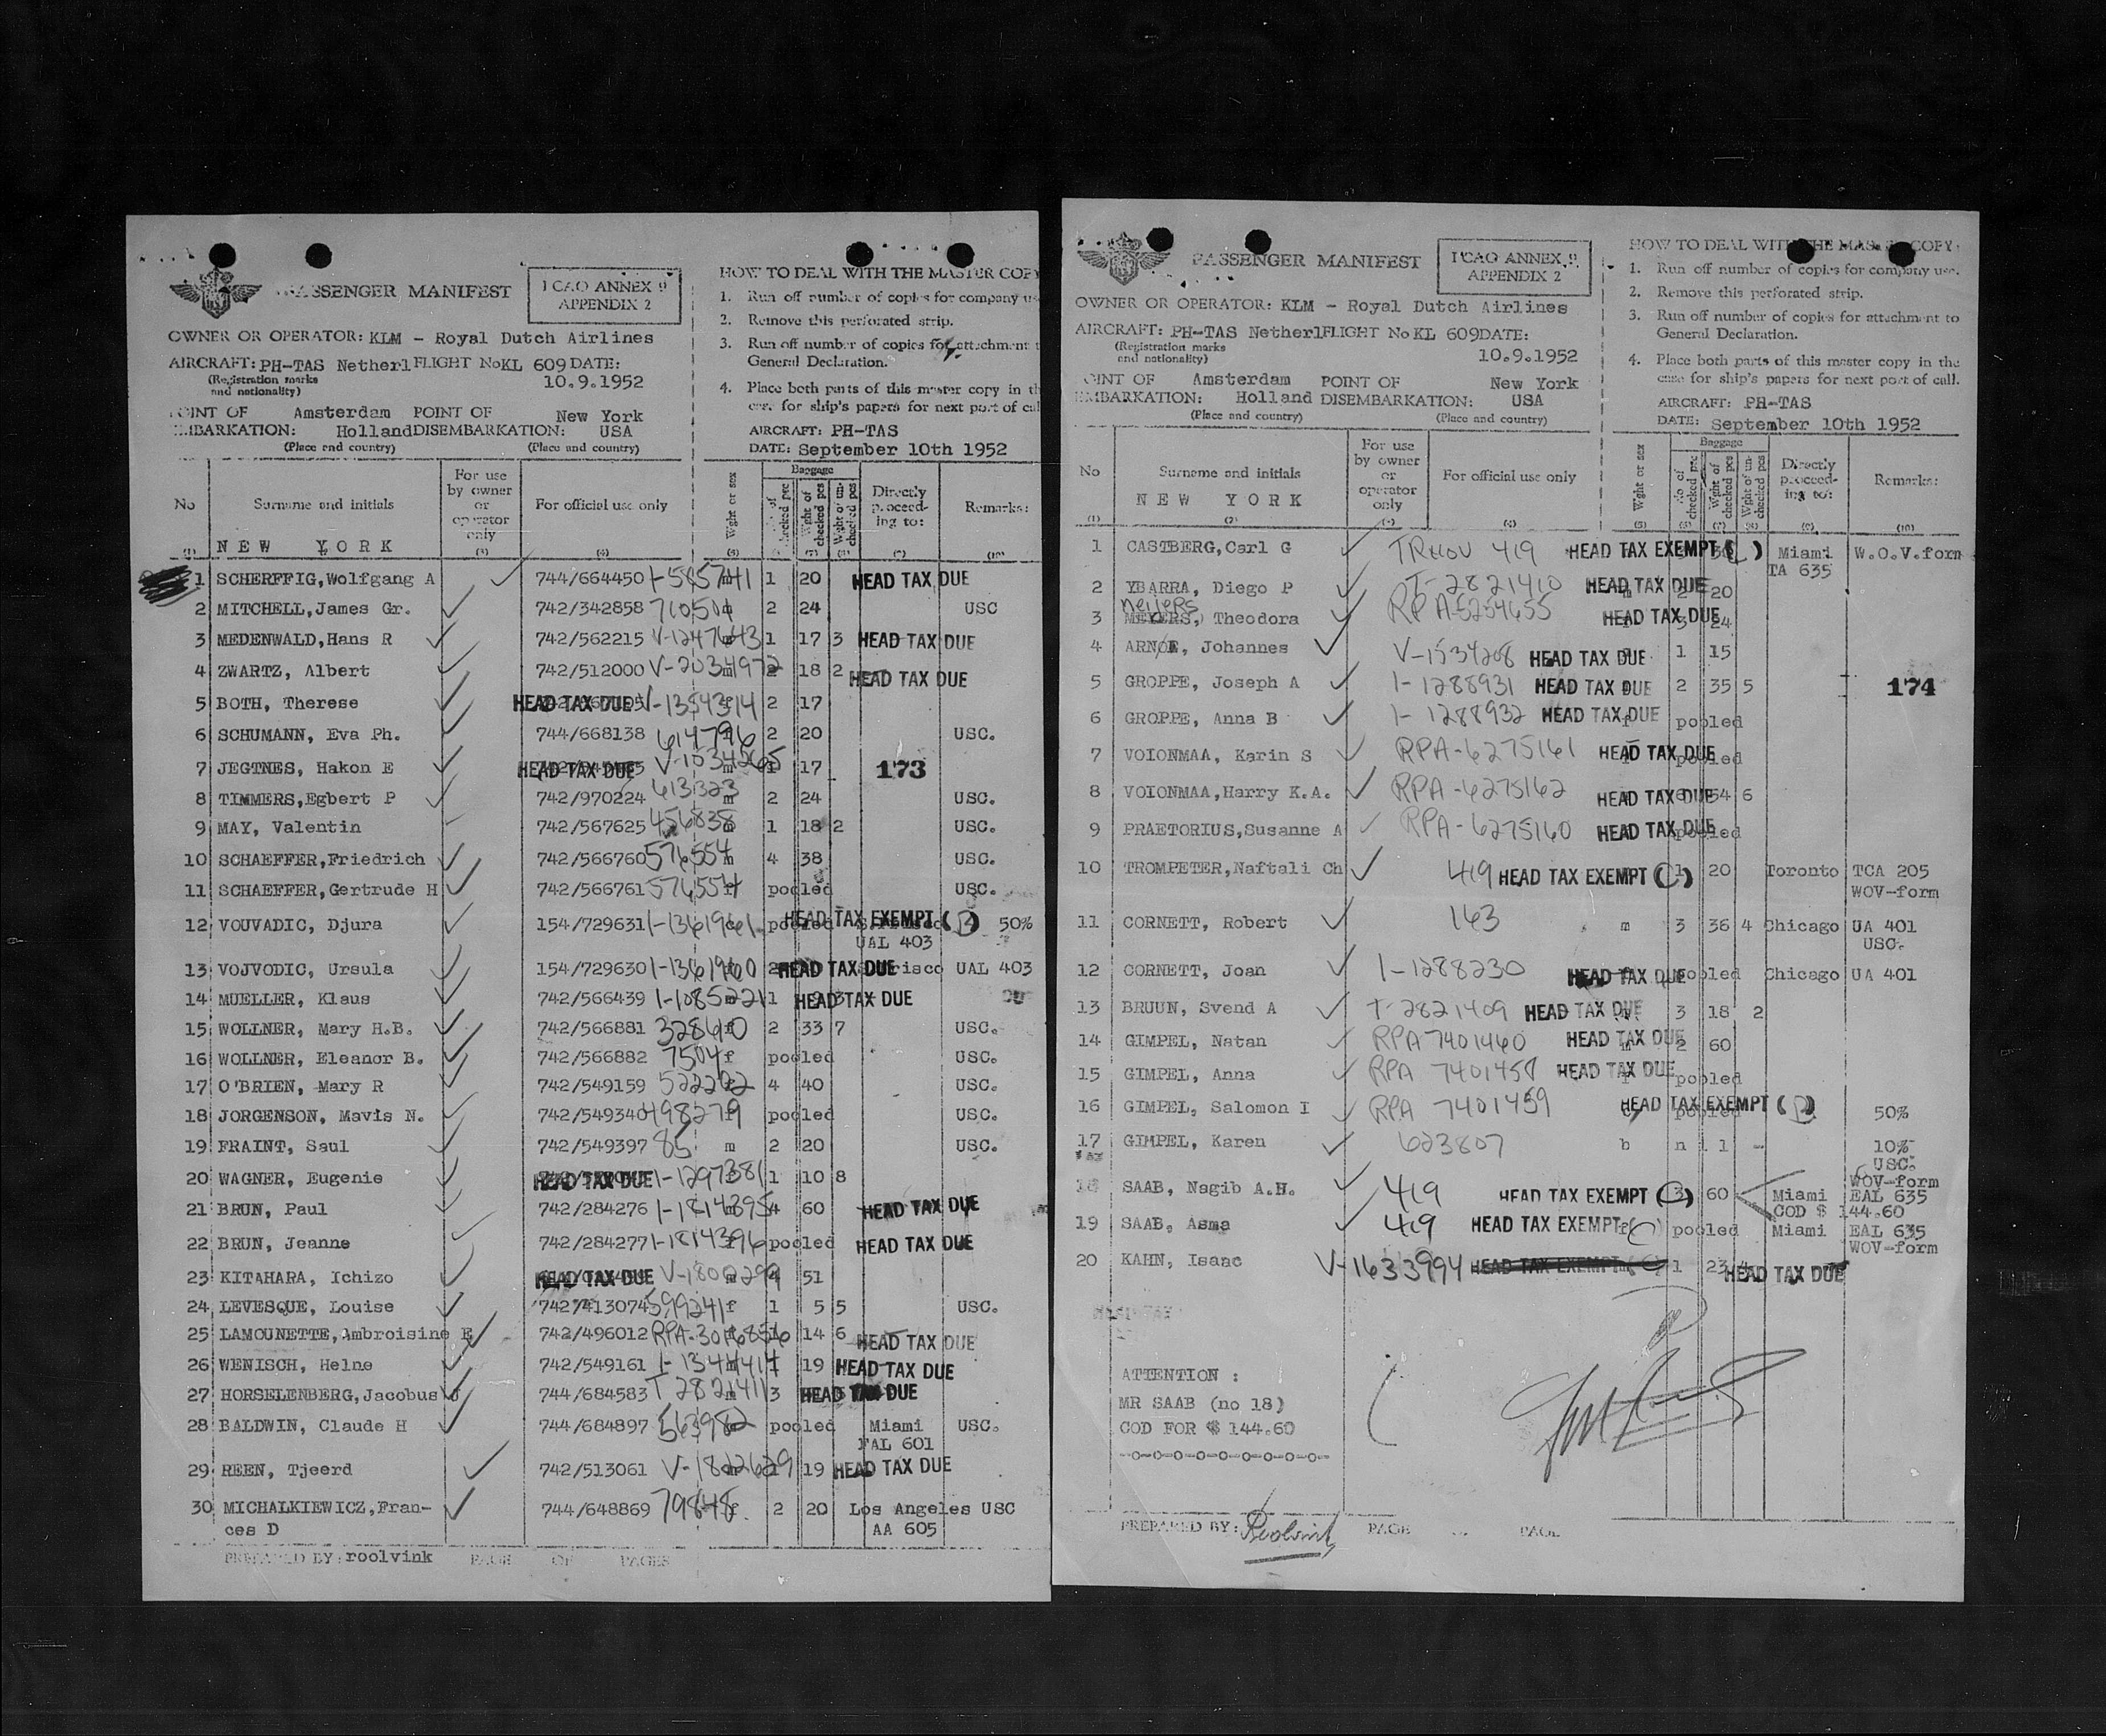 PASSENGER MANIFEST
I CAO ANNEX 9
APPENDIX 2
OWNER OR OPERATOR: KLM - Royal Dutch Airlines
AIRCRAFT: PH-TAS Netherl FLIGHT No KL 609 DATE:
(Registration marks
and nationality)
10.9.1952
POINT OF Amsterdam POINT OF New York
EMBARKATION: Holland DISEMBARKATION: USA
(Place and country) (Place and country)
HOW TO DEAL WITH THE MASTER COPY
1. Run off number of copies for company us
2. Remove this perforated strip.
3. Run off number of copies for attachment t
General Declaration.
4. Place both parts of this master copy in th
case for ship's papers for next port of cal
AIRCRAFT: PH-TAS
DATE: September 10th 1952
No Surname and initials For use by owner or operator only For official use only Wght or sex Baggage Wght of checked pcs Wght of un-checked pcs Directly proceed-ing to: Remarks:
NEW YORK
1 SCHERFFIG, Wolfgang A 744/664450 1 20 HEAD TAX DUE
2 MITCHELL, James Gr. 742/342858 2 24 USC
3 MEDENWALD, Hans R 742/562215 V-1247643 1 17 3 HEAD TAX DUE
4 ZWARTZ, Albert 742/512000 V-2034972 18 2 HEAD TAX DUE
5 BOTH, Therese HEAD TAX DUE V-1354314 2 17
6 SCHUMANN, Eva Ph. 744/668138 614796 2 20 USC.
7 JEGTNES, Hakon E HEAD TAX DUE V-1034265 17
173
8 TIMMERS, Egbert P 742/970224 613323 m 2 24 USC.
9 MAY, Valentin 742/567625 456838 1 18 2 USC.
10 SCHAEFFER, Friedrich 742/566760 576554 4 38 USC.
11 SCHAEFFER, Gertrude H 742/566761 576554 pooled USC.
12 VOUVADIC, Djura 154/729631 1-1361961 pooled HEAD TAX EXEMPT 50%
UAL 403
13 VOJVODIC, Ursula 154/729630 1-1361960 HEAD TAX DUE UAL 403
14 MUELLER, Klaus 742/566439 1-1085221 1 HEAD TAX DUE
15 WOLLNER, Mary H.B. 742/566881 328640 2 33 7 USC.
16 WOLLNER, Eleanor B. 742/566882 7504 f pooled USC.
17 O'BRIEN, Mary R 742/549159 522222 4 40 USC.
18 JORGENSON, Mavis N. 742/549340 498279 pooled USC.
19 FRAINT, Saul 742/549397 85 m 2 20 USC.
20 WAGNER, Eugenie HEAD TAX DUE 1-1297381 1 10 8
21 BRUN, Paul 742/284276 1-1814395 4 60 HEAD TAX DUE
22 BRUN, Jeanne 742/284277 1-1814396 pooled HEAD TAX DUE
23 KITAHARA, Ichizo HEAD TAX DUE 51
24 LEVESQUE, Louise 742/413074 599241 f 1 5 5 USC.
25 LAMOUNETTE, Ambroisine E 742/496012 RPA-3016856 14 6 HEAD TAX DUE
26 WENISCH, Helne 742/549161 1-1344414 19 HEAD TAX DUE
27 HORSELENBERG, Jacobus J 744/684583 T 2821411 3 HEAD TAX DUE
28 BALDWIN, Claude H 744/684897 563982 pooled Miami USC.
601
29 REEN, Tjeerd 742/513061 V-1822629 19 HEAD TAX DUE
30 MICHALKIEWICZ, Fran- 744/648869 79848 f 2 20 Los Angeles USC
ces D AA 605
PREPARED BY: roolvink PAGE OF PAGES
PASSENGER MANIFEST
I CAO ANNEX 9
APPENDIX 2
OWNER OR OPERATOR: KLM - Royal Dutch Airlines
AIRCRAFT: PH-TAS Netherl FLIGHT No KL 609 DATE:
(Registration marks
and nationality)
10.9.1952
POINT OF Amsterdam POINT OF New York
EMBARKATION: Holland DISEMBARKATION: USA
(Place and country) (Place and country)
HOW TO DEAL WITH THE MASTER COPY
1. Run off number of copies for company use.
2. Remove this perforated strip.
3. Run off number of copies for attachment to
General Declaration.
4. Place both parts of this master copy in the
case for ship's papers for next port of call.
AIRCRAFT: PH-TAS
DATE: September 10th 1952
No Surname and initials For use by owner or operator only For official use only Wght or sex Baggage No of checked pcs Wght of checked pcs Wght of un-checked pcs Directly proceed-ing to: Remarks:
NEW YORK
1 CASTBERG, Carl G 419 HEAD TAX EXEMPT Miami W.O.V.form
TA 635
2 YBARRA, Diego P T-2821410 HEAD TAX DUE 20
Meijers
3 MEYERS, Theodora RPA-6254655 HEAD TAX DUE 3 24
4 ARNOE, Johannes V-1534208 HEAD TAX DUE 1 15
5 GROPPE, Joseph A 1-1288931 HEAD TAX DUE 2 35 5
174
6 GROPPE, Anna B 1-1288932 HEAD TAX DUE pooled
7 VOIONMAA, Karin S RPA-6275161 HEAD TAX DUE pooled
8 VOIONMAA, Harry K.A. RPA-6275162 HEAD TAX DUE 54 6
9 PRAETORIUS, Susanne A RPA-6275160 HEAD TAX DUE pooled
10 TROMPETER, Naftali Ch 419 HEAD TAX EXEMPT (C) 1 20 Toronto TCA 205
WOV-form
11 CORNETT, Robert 163 m 3 36 4 Chicago UA 401
USC.
12 CORNETT, Joan 1-1288230 HEAD TAX DUE pooled Chicago UA 401
13 BRUUN, Svend A T-2821409 HEAD TAX DUE 3 18 2
14 GIMPEL, Natan RPA 7401460 HEAD TAX DUE 2 60
15 GIMPEL, Anna RPA 7401458 HEAD TAX DUE pooled
16 GIMPEL, Salomon I RPA 7401459 HEAD TAX EXEMPT pooled 50%
17 GIMPEL, Karen 623807 b n i l - 10%
USC.
WOV-form
18 SAAB, Nagib A.H. 419 HEAD TAX EXEMPT (C) 3 60 Miami EAL 635
COD $ 144.60
19 SAAB, Asma 419 HEAD TAX EXEMPT (C) pooled Miami EAL 635
WOV-form
20 KAHN, Isaac V-1633994 HEAD TAX EXEMPT 1 23 HEAD TAX DUE
ATTENTION :
MR SAAB (no 18)
COD FOR $ 144.60
-o-o-o-o-o-o-o-o-o-
PREPARED BY: Roolvink PAGE PAGE